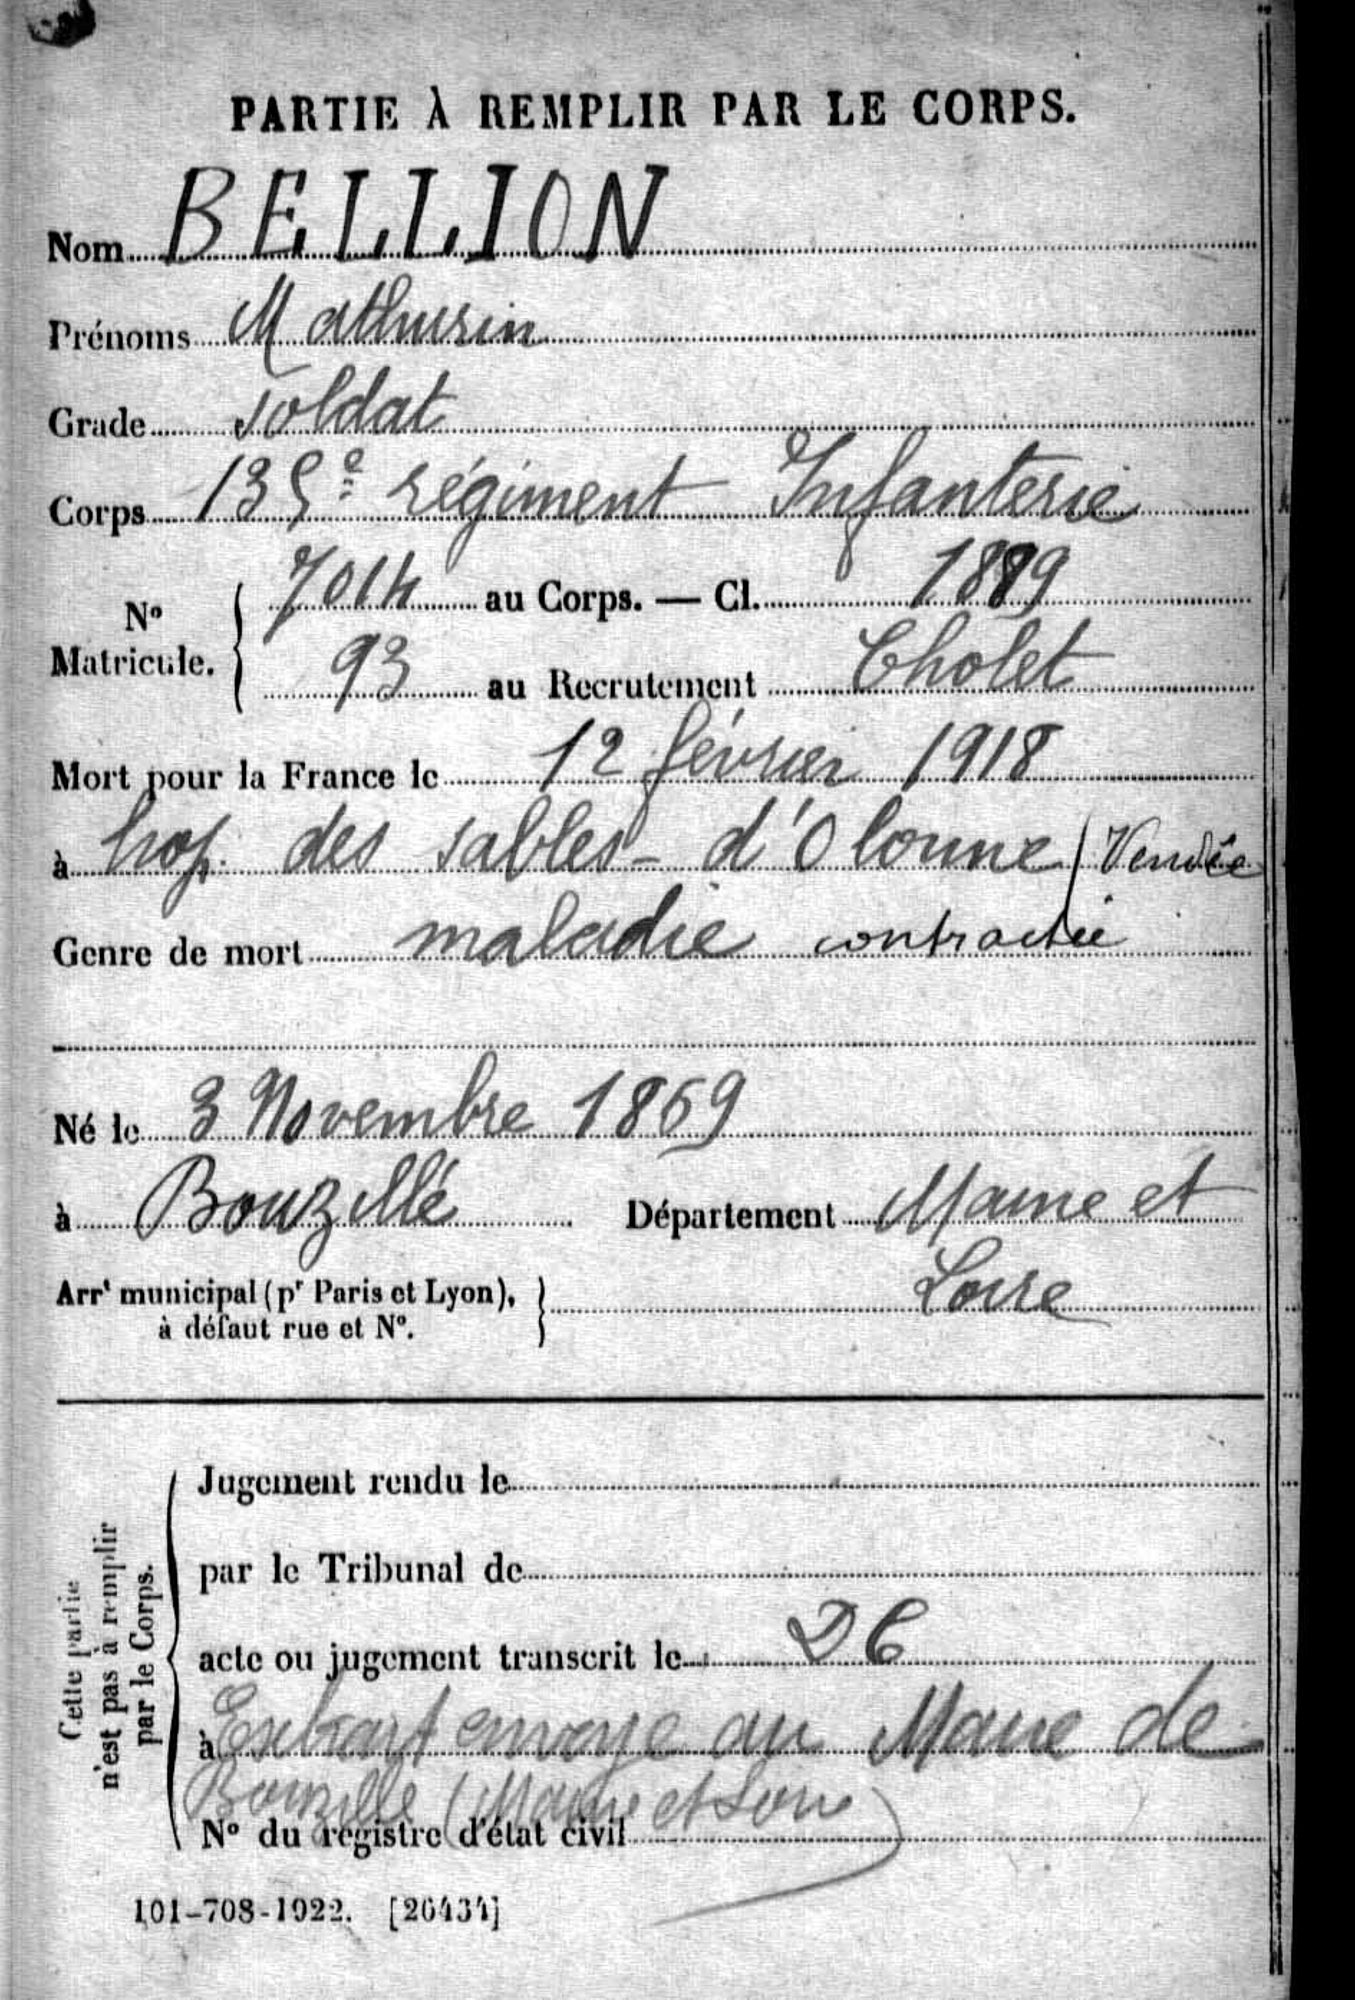 PARTIE À REMPLIR PAR LE CORPS.
Nom BELLION
Prénoms Mathurin
Grade soldat
Corps 135e régiment Infanterie
N° Matricule. 7014 au Corps. — Cl. 1889
93 au Recrutement Cholet
Mort pour la France le 12 février 1918
à hop. des sables-d'Olonne (Vendée
Genre de mort maladie contractée
Né le 3 Novembre 1869
à Bouzillé Département Maine et
Loire
Arrt municipal (pr Paris et Lyon),
à défaut rue et N°.
Cette partie
n'est pas à remplir
par le Corps.
Jugement rendu le
par le Tribunal de
acte ou jugement transcrit le DC
à Extrait envoyé au Maire de
Bouzillé (Maine et Loire)
N° du registre d'état civil
101-708-1922. [26434]